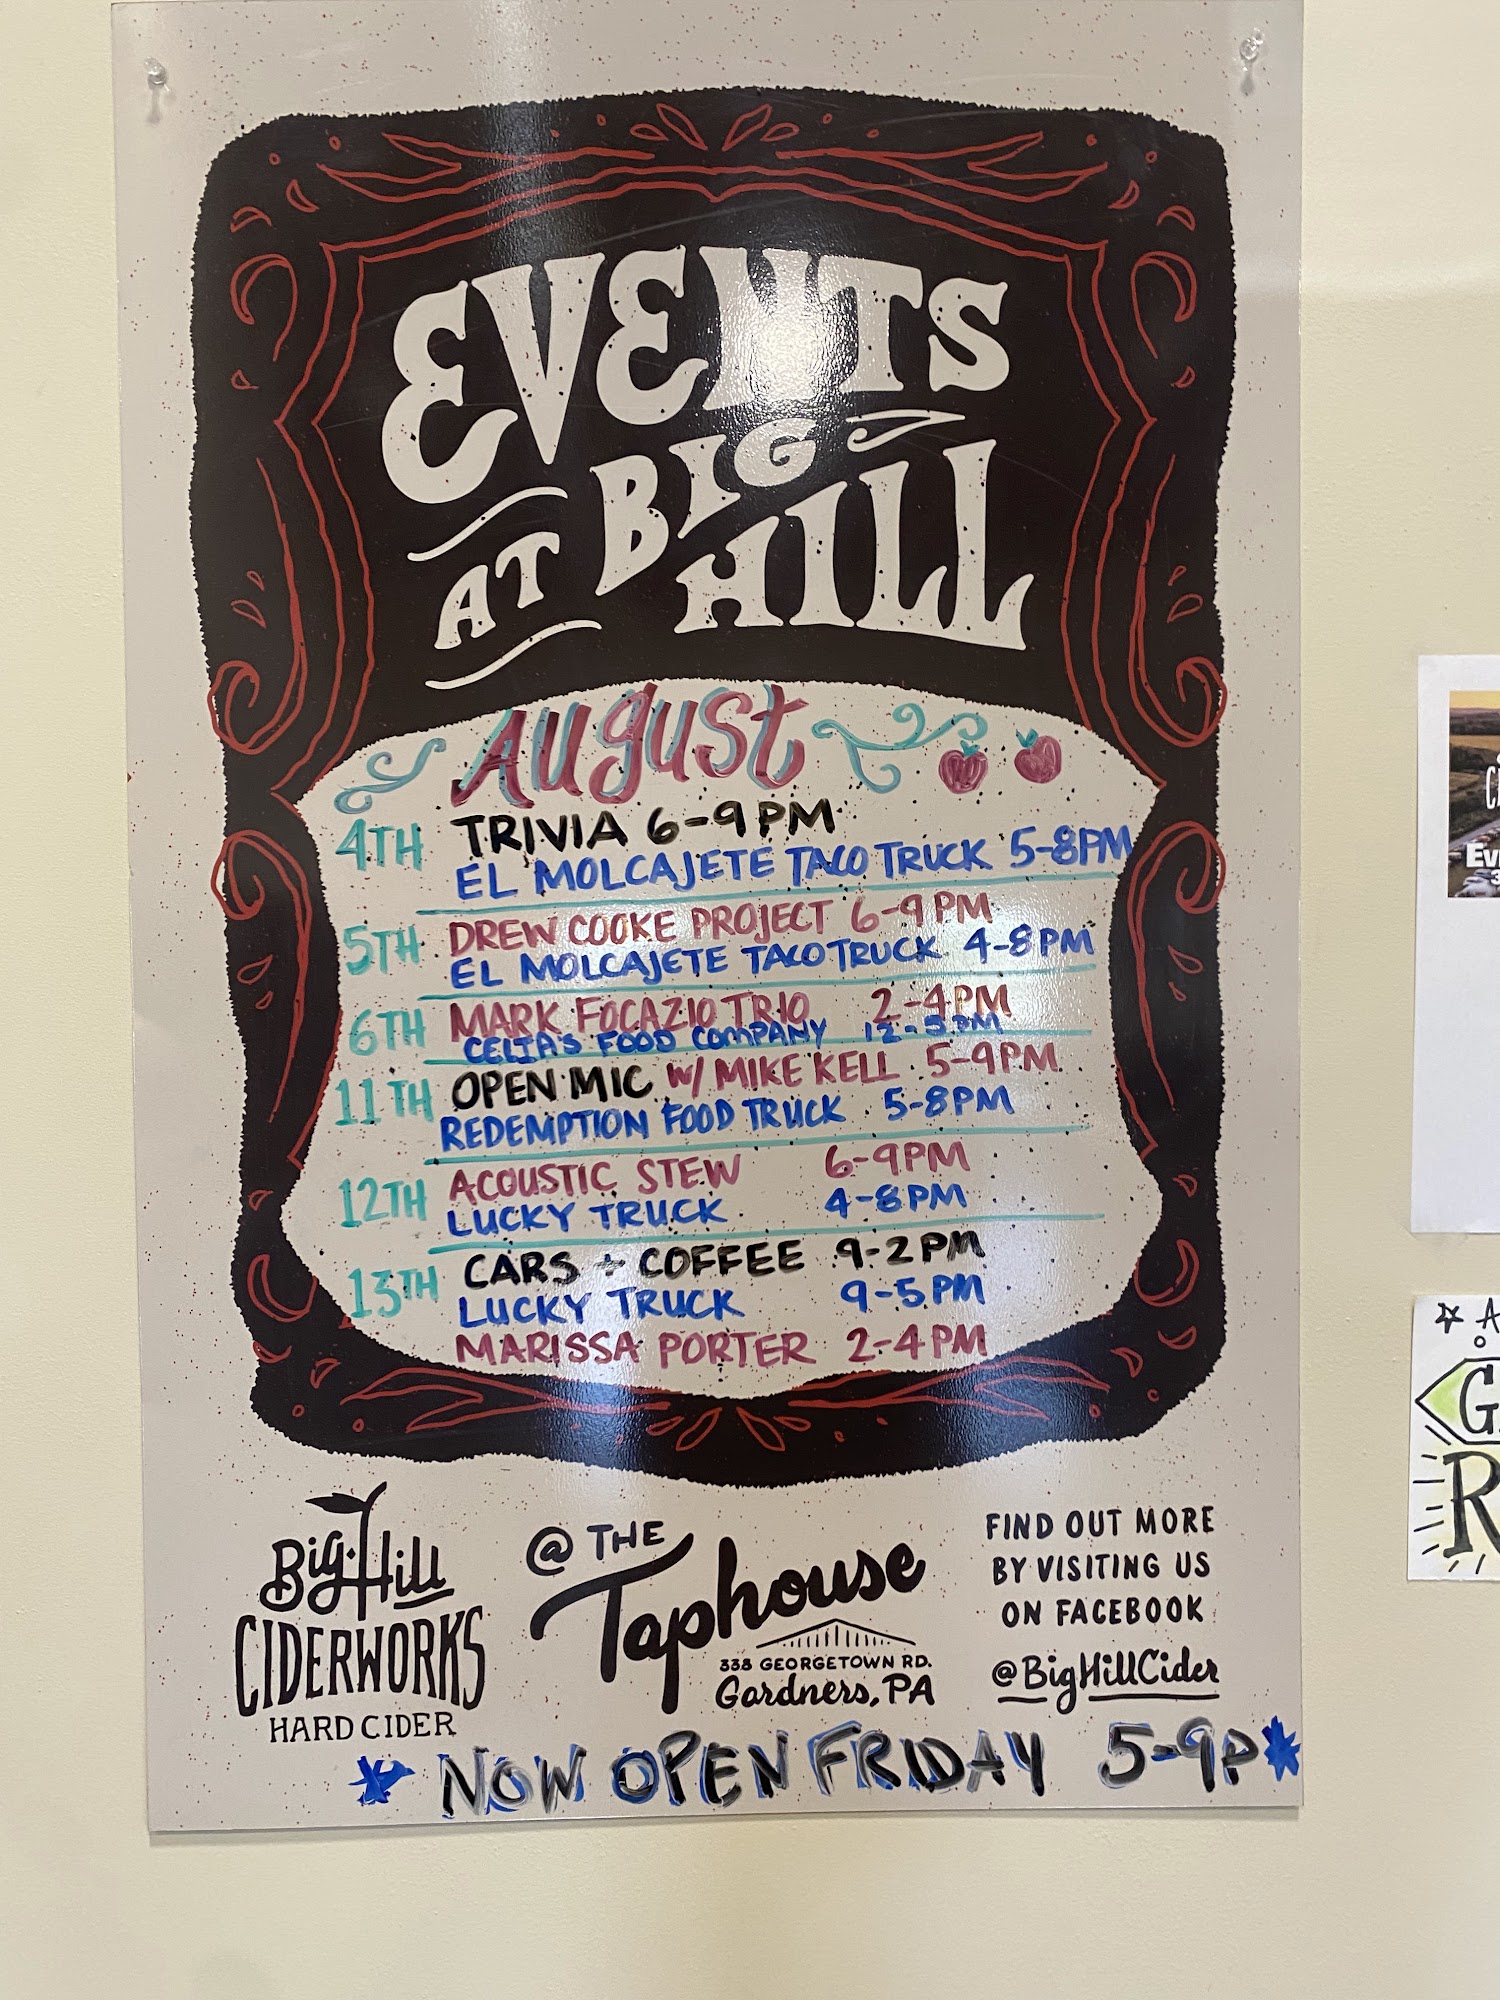 EVENTS
AT BIG
HILL
AUGUST
4TH TRIVIA 6-9PM
EL MOLCAJETE TACO TRUCK 5-8PM
5TH DREW COOKE PROJECT 6-9PM
EL MOLCAJETE TACO TRUCK 4-8PM
6TH MARK FOCAZIO TRIO 2-4PM
CELIA'S FOOD COMPANY 12-5PM
11TH OPEN MIC w/ MIKE KELL 5-9PM
REDEMPTION FOOD TRUCK 5-8PM
12TH ACOUSTIC STEW 6-9PM
LUCKY TRUCK 4-8PM
13TH CARS + COFFEE 9-2PM
LUCKY TRUCK 9-5PM
MARISSA PORTER 2-4PM
Big Hill
CIDERWORKS
HARD CIDER
@ THE
Taphouse
338 GEORGETOWN RD.
Gardners, PA
FIND OUT MORE
BY VISITING US
ON FACEBOOK
@BigHillCider
* NOW OPEN FRIDAY 5-9P *